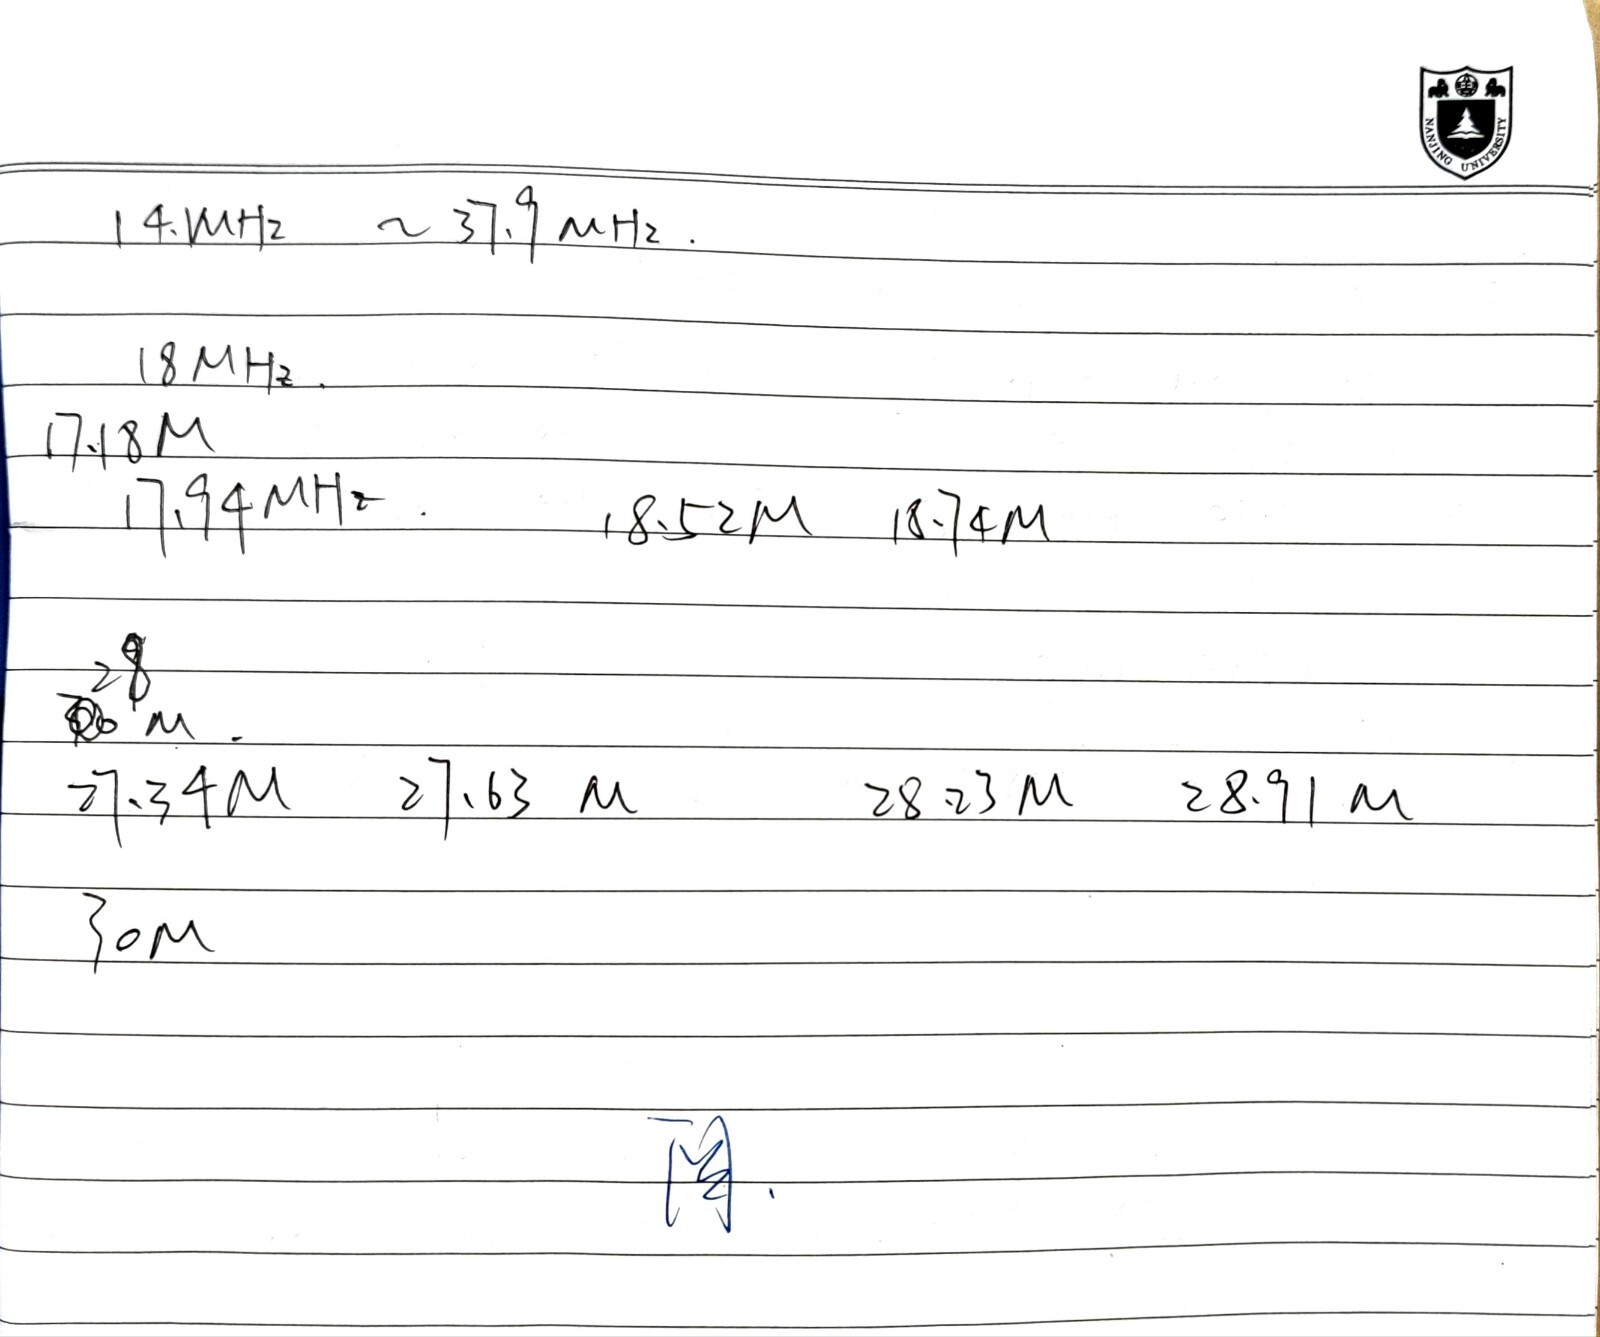 NANJING UNIVERSITY
14.1MHz ~ 37.9 MHz.
18 MHz.
17.18 M
17.94 MHz. 18.52M 18.74M
28
M.
27.34M 27.63 M 28.23 M 28.91 M
30M